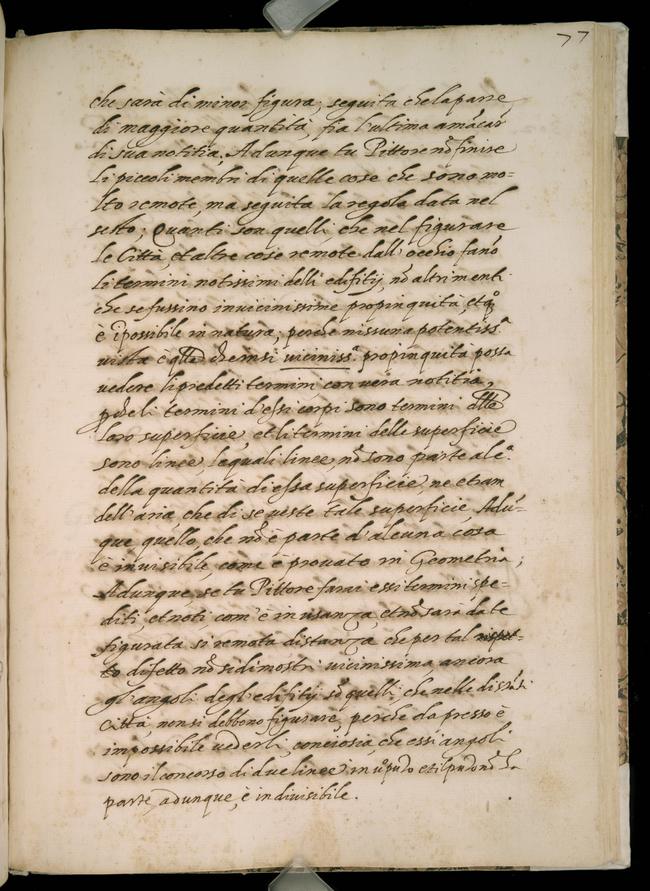 77
che sarà di minor figura, seguita che la parte,
di maggiore quantità, fia l'ultima a mãcar
di sua notitia, Adunque tu Pittore nõ finire
li piccoli membri di quelle cose che sono mo-
lto remote, ma seguita la regola data nel
sesto; Quanti son quelli, che nel figurare
le Città, et altre cose remote dall'occhio fanõ
li termini notissimi delli edifitij, nõ altrimenti
che se fussino in vicinissime propinquità, et
è ĩpossibile in natura; perche nissuna potentiss.a
vista è che in si viciniss.a propinquità possa
vedere li predetti termini con vera notitia,
li termini d'essi corpi sono termini
loro superficie, et li termini delle superficie
sono linee, le quali linee, nõ sono parte alc.a
della quantità di essa superficie, ne etiam
dell'aria, che di se veste tale superficie, Adũ-
que quello, che nõ è parte d'alcuna cosa
è invisibile, come è provato in Geometria;
Adunque, se tu Pittore farai essi termini spe-
diti, et noti com'è in usanza, et nõ sarà da te
figurata si remota distanza, che per tal rispet-
to difetto nõ si dimostri vicinissima ancora
gl'angoli degl'edifitij sõ quelli, che nelle distãti
Città, non si debbono figurare, perche da presso è
impossibile vederli, conciosia, che essi angoli
sono il concorso di due linee in ũ pũto et il pũto nõ ha
parte, adunque, è indivisibile.